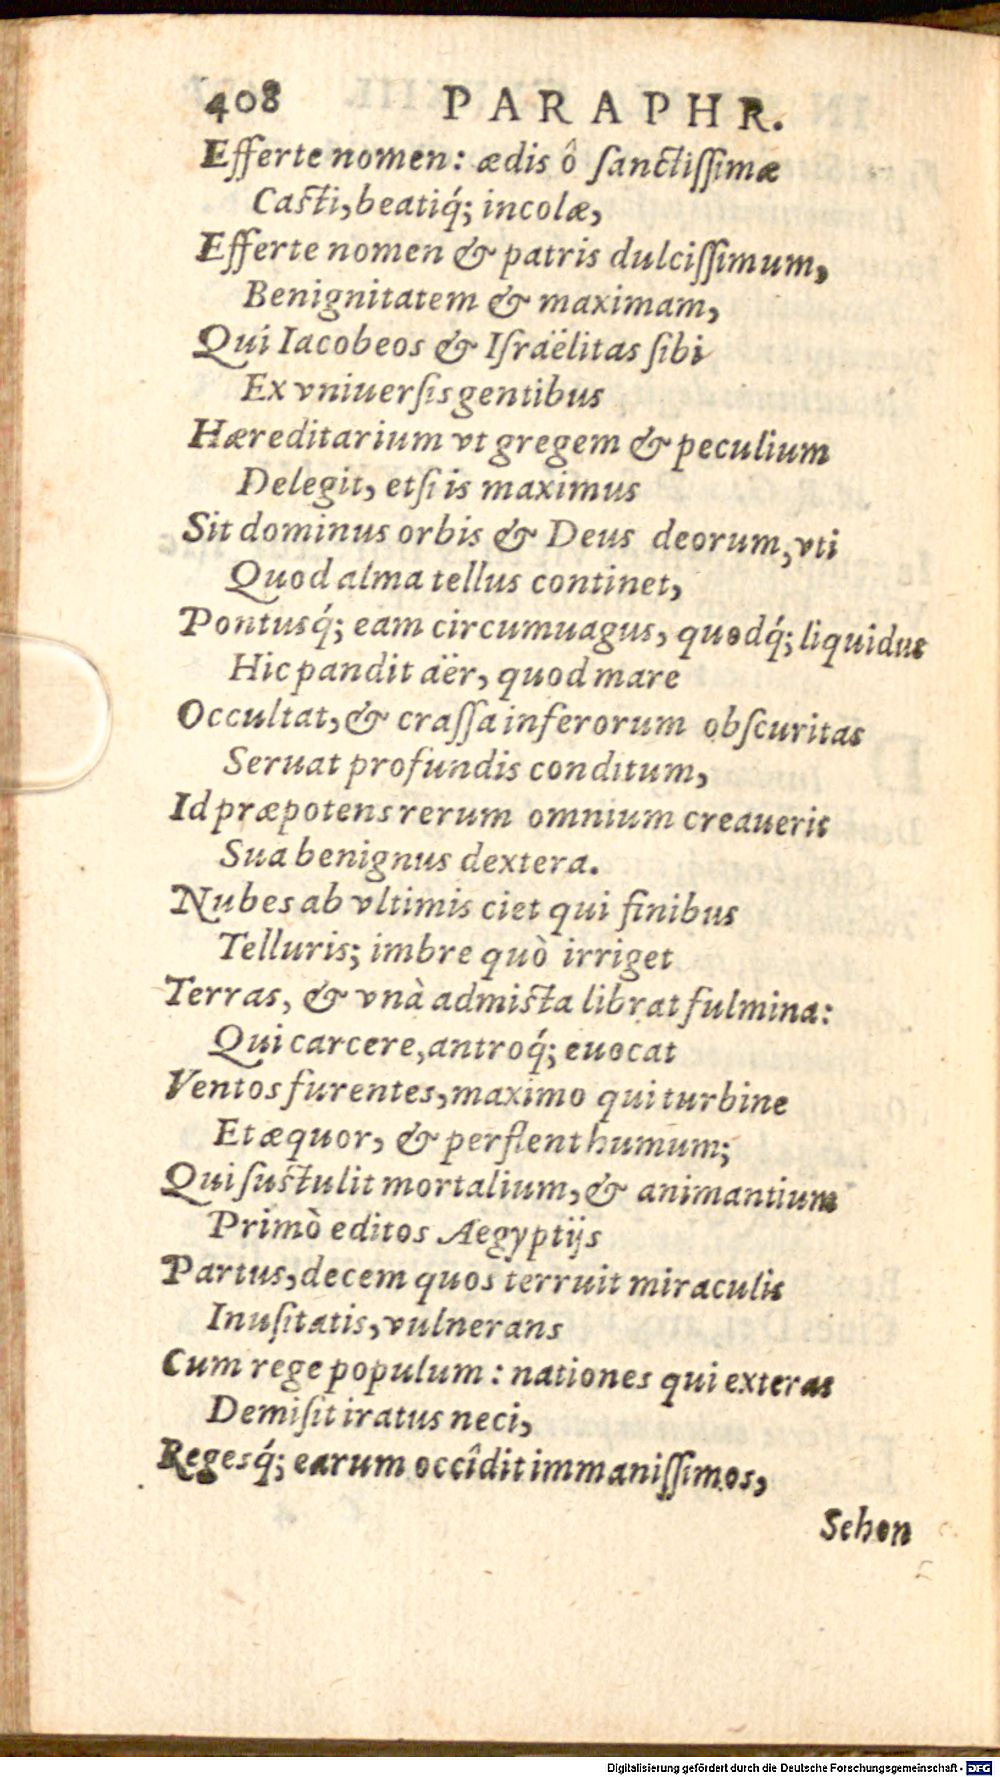 408 PARAPHR.
Efferte nomen: ædis ô ſanctiſſimæ
Caſti, beatiq́; incolæ,
Efferte nomen & patris dulciſſimum,
Benignitatem & maximam,
Qui Iacobeos & Iſraëlitas ſibi
Ex vniuerſis gentibus
Hæreditarium vt gregem & peculium
Delegit, etſi is maximus
Sit dominus orbis & Deus deorum, vti
Quod alma tellus continet,
Pontusq́; eam circumuagus, quodq́; liquidus
Hic pandit aër, quod mare
Occultat, & craſſa inferorum obſcuritas
Seruat profundis conditum,
Id præpotens rerum omnium creauerit
Sua benignus dextera.
Nubes ab vltimis ciet qui finibus
Telluris; imbre quò irriget
Terras, & vnà admiſta librat fulmina:
Qui carcere, antroq́; euocat
Ventos furentes, maximo qui turbine
Et æquor, & perflent humum;
Qui ſuſtulit mortalium, & animantium
Primò editos Aegyptijs
Partus, decem quos terruit miraculis
Inuſitatis, vulnerans
Cum rege populum: nationes qui exteras
Demiſit iratus neci,
Regesq́; earum occîdit immaniſſimos,
Sehon
Digitalisierung gefördert durch die Deutsche Forschungsgemeinschaft - DFG